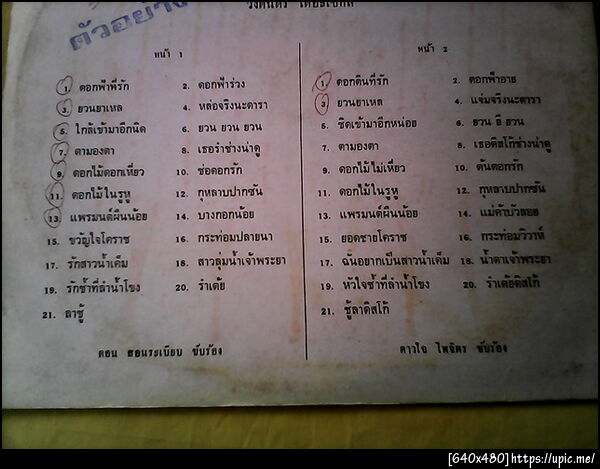 ตัวอย่าง
วงดนตรี
หน้า 1
1. ดอกฟ้าที่รัก 2. ดอกฟ้าร่วง
3. ยวนยาเหล 4. หล่อจริงนะดารา
5. ใกล้เข้ามาอีกนิด 6. ยวน ยวน ยวน
7. ตามองตา 8. เธอรำช่างน่าดู
9. ดอกไม้ดอกเหี่ยว 10. ช่อดอกรัก
11. ดอกไม้ในรูหู 12. กุหลาบปากซัน
13. แพรมนต์ผืนน้อย 14. บางกอกน้อย
15. ขวัญใจโคราช 16. กระท่อมปลายนา
17. รักสาวน้ำเค็ม 18. สาวลุ่มน้ำเจ้าพระยา
19. รักช้ำที่ลำน้ำโขง 20. รำเต้ย
21. ลาชู้
ดอน สอนระเบียบ ขับร้อง
หน้า 2
1. ดอกดินที่รัก 2. ดอกฟ้าอาย
3. ยวนยาเหล 4. แจ่มจริงนะดารา
5. ชิดเข้ามาอีกหน่อย 6. ยวน ยี ยวน
7. ตามองตา 8. เธอดิสโก้ช่างน่าดู
9. ดอกไม้ไม่เหี่ยว 10. ต้นดอกรัก
11. ดอกไม้ในรูหู 12. กุหลาบปากซัน
13. แพรมนต์ผืนน้อย 14. แม่ค้าบัวลอย
15. ยอดชายโคราช 16. กระท่อมวิวาห์
17. ฉันอยากเป็นสาวน้ำเค็ม 18. น้ำตาเจ้าพระยา
19. หัวใจช้ำที่ลำน้ำโขง 20. รำเต้ยดิสโก้
21. ชู้ลาดิสโก้
ดาวใจ ไพจิตร ขับร้อง
[640x480]https://upic.me/